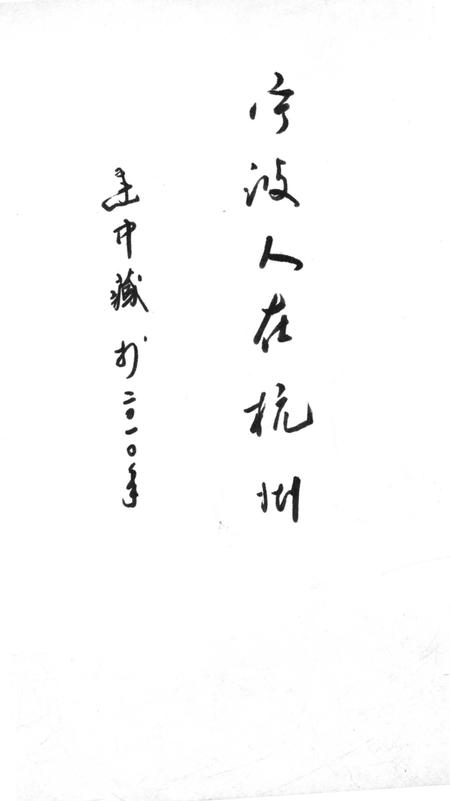 宁波人在杭州
建中藏于二〇一〇年